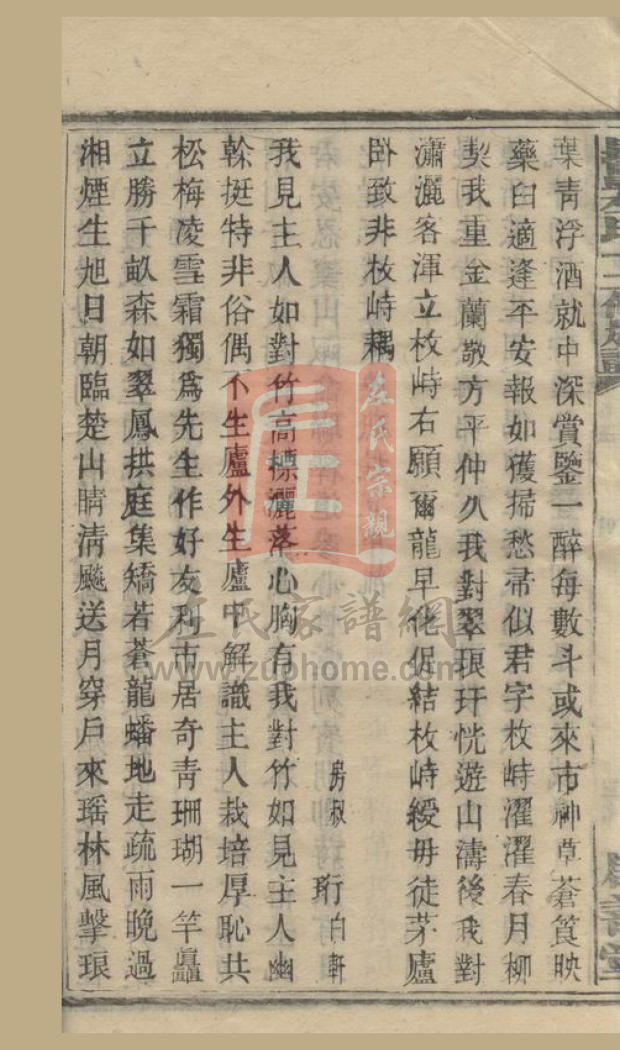 葉青浮酒就中深賞鑒一醉每數斗或來市神草蒼筤映
藥臼適逢平安報如獲掃愁帚似君字枚峙濯濯春月柳
契我重金蘭敬方平仲久我對翠琅玕恍遊山濤後我對
瀟灑客渾立枚峙右願爾龍早化促結枚峙綬毋徒茅廬
臥致非枚峙耦
房叔 珩 白軒
我見主人如對竹高標灑落常心胸有我對竹如見主人幽
榦挺特非俗偶不生廬外生廬中解識主人栽培厚恥共
松梅凌雪霜獨為先生作好友利市居奇青珊瑚一竿矗
立勝千畝森如翠鳳拱庭集矯若蒼龍蟠地走疏雨晚過
湘煙生旭日朝臨楚山晴清飈送月穿戶來瑤林風擊琅
左氏宗親
左氏家譜網
www.zuohome.com